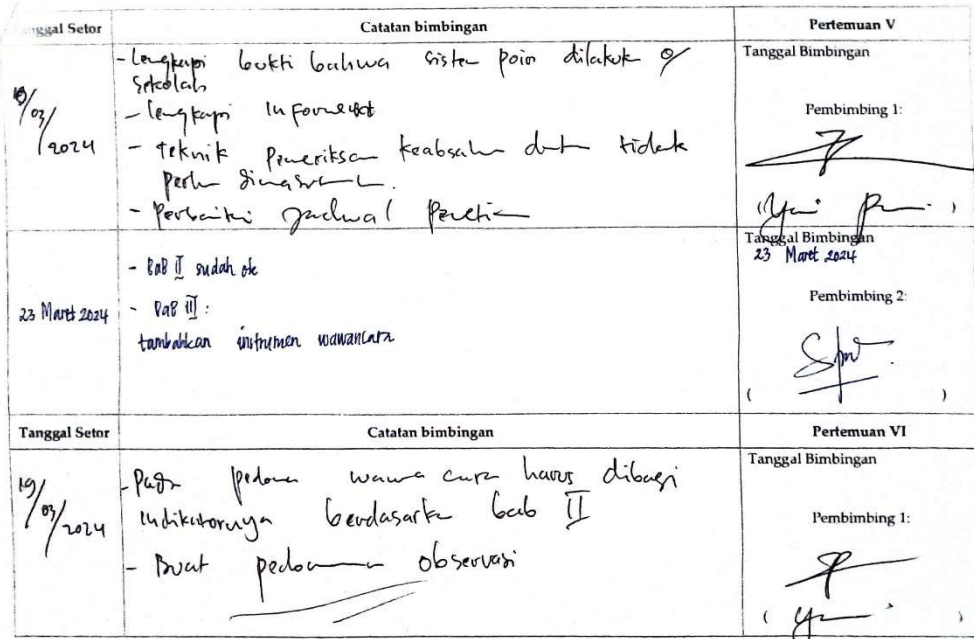 Tanggal Setor Catatan bimbingan Pertemuan V
- Lengkapi bukti bahwa sistem poin dilakuk o/
sekolah
- lengkapi Informant
- Teknik Pemeriksaan keabsahan data tidak
perlu
- Perbaiki Jadwal Penelitian
/03/2024
Tanggal Bimbingan
Pembimbing 1:
( )
- BaB II sudah ok
- BaB III :
tambahkan instrumen wawancara
23 Maret 2024
Tanggal Bimbingan
23 Maret 2024
Pembimbing 2:
( )
Tanggal Setor Catatan bimbingan Pertemuan VI
19/03/2024
- Pada pedoman wawancara harus dibagi
indikatornya berdasarkan bab II
- Buat pedoman observasi
Tanggal Bimbingan
Pembimbing 1:
( )